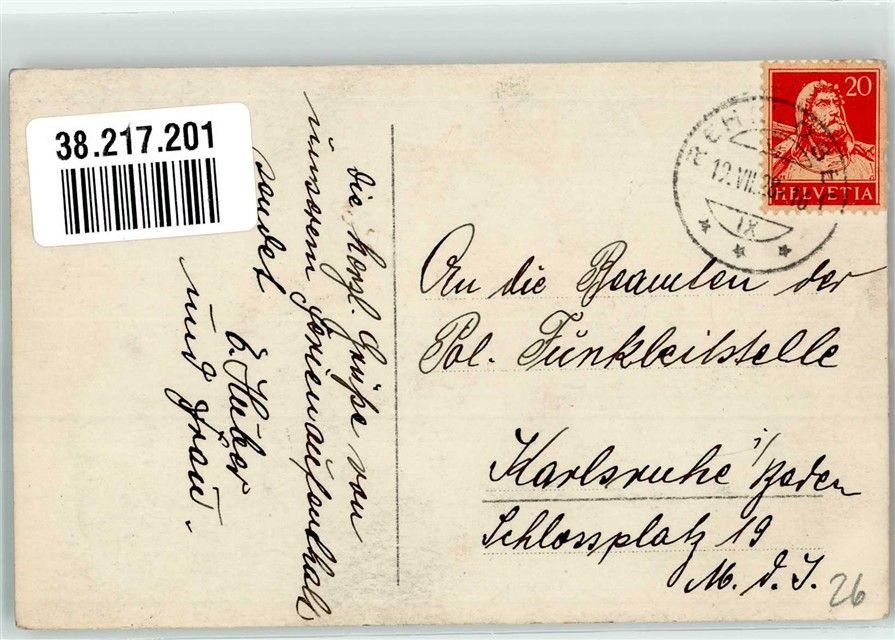 38.217.201
die herzl. Grüße von
unserem Ferienaufenthalt
sendet
E. Huber
und Frau.
20
HELVETIA
XI
An die Beamten der
Pol. Funkleitstelle
Karlsruhe i/Baden
Schlossplatz 19
M. d. I.
26